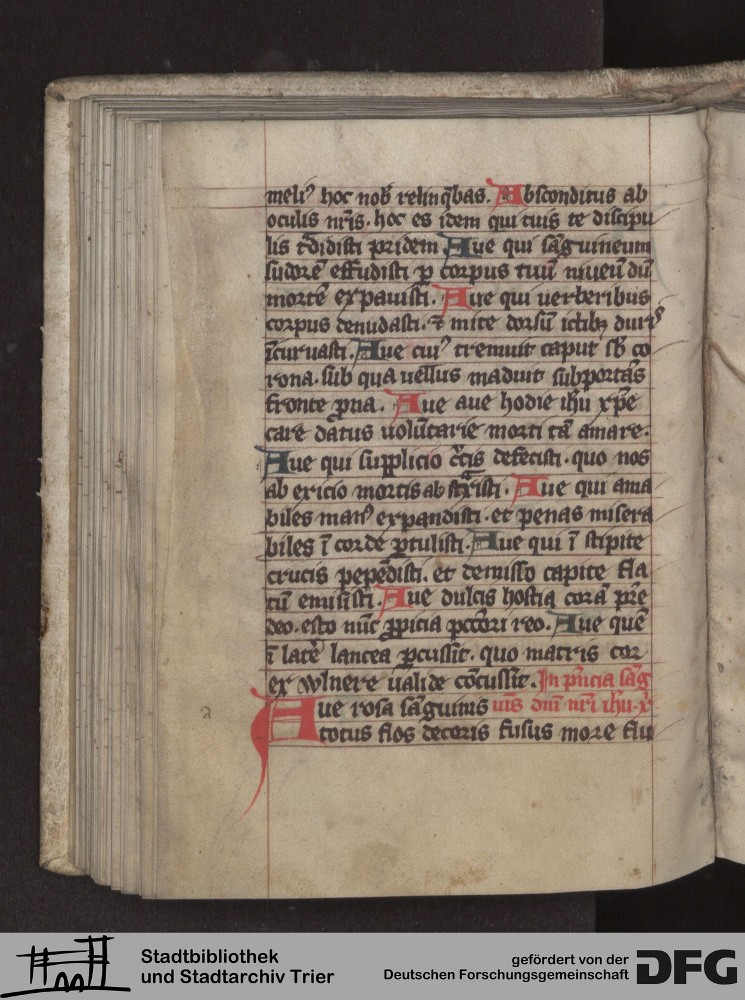 meliꝰ hoc nob̄ relinq̄bas. Absconditus ab
oculis nr̄is. hoc es idem qui tuis te discipu
lis t̄didisti pridem Aue qui sāguineum
sudorē effudisti ꝓ corpus tuū niueū dū
mortē expauisti. Aue qui uerberibus
corpus denudasti. ⁊ mite dorsū ictibꝫ durꝭ
īcuruasti. Aue cuiꝰ tremuit caput sb̄ co
rona. sub qua uellus maduit subportās
fronte ꝓna. Aue aue hodie ih̄u xp̄e
care datus uolūtarie morti tā amare.
Aue qui supplicio c̄cis defecisti. quo nos
ab exicio mortis ab
Aue qui ama
biles manꝰ expandisti. et penas misera
biles ī corde ꝑtulisti. Aue qui ī stipite
crucis pepēdisti. et demisso capite fla
tū emisisti. Aue dulcis hostia corā pr̄e
deo. esto nūc ꝓpicia pcc̄ori reo. Aue quē
ī late lancea ꝑcussit. quo matris cor
ex wlnere ualide cōcussit. In p̄ncia sāg
Aue rosa sāguinis uīs dn̄i nr̄i ih̄u. xꝭ
totus flos decoris fusus more flu
a
Stadtbibliothek
und Stadtarchiv Trier
gefördert von der
Deutschen Forschungsgemeinschaft
DFG